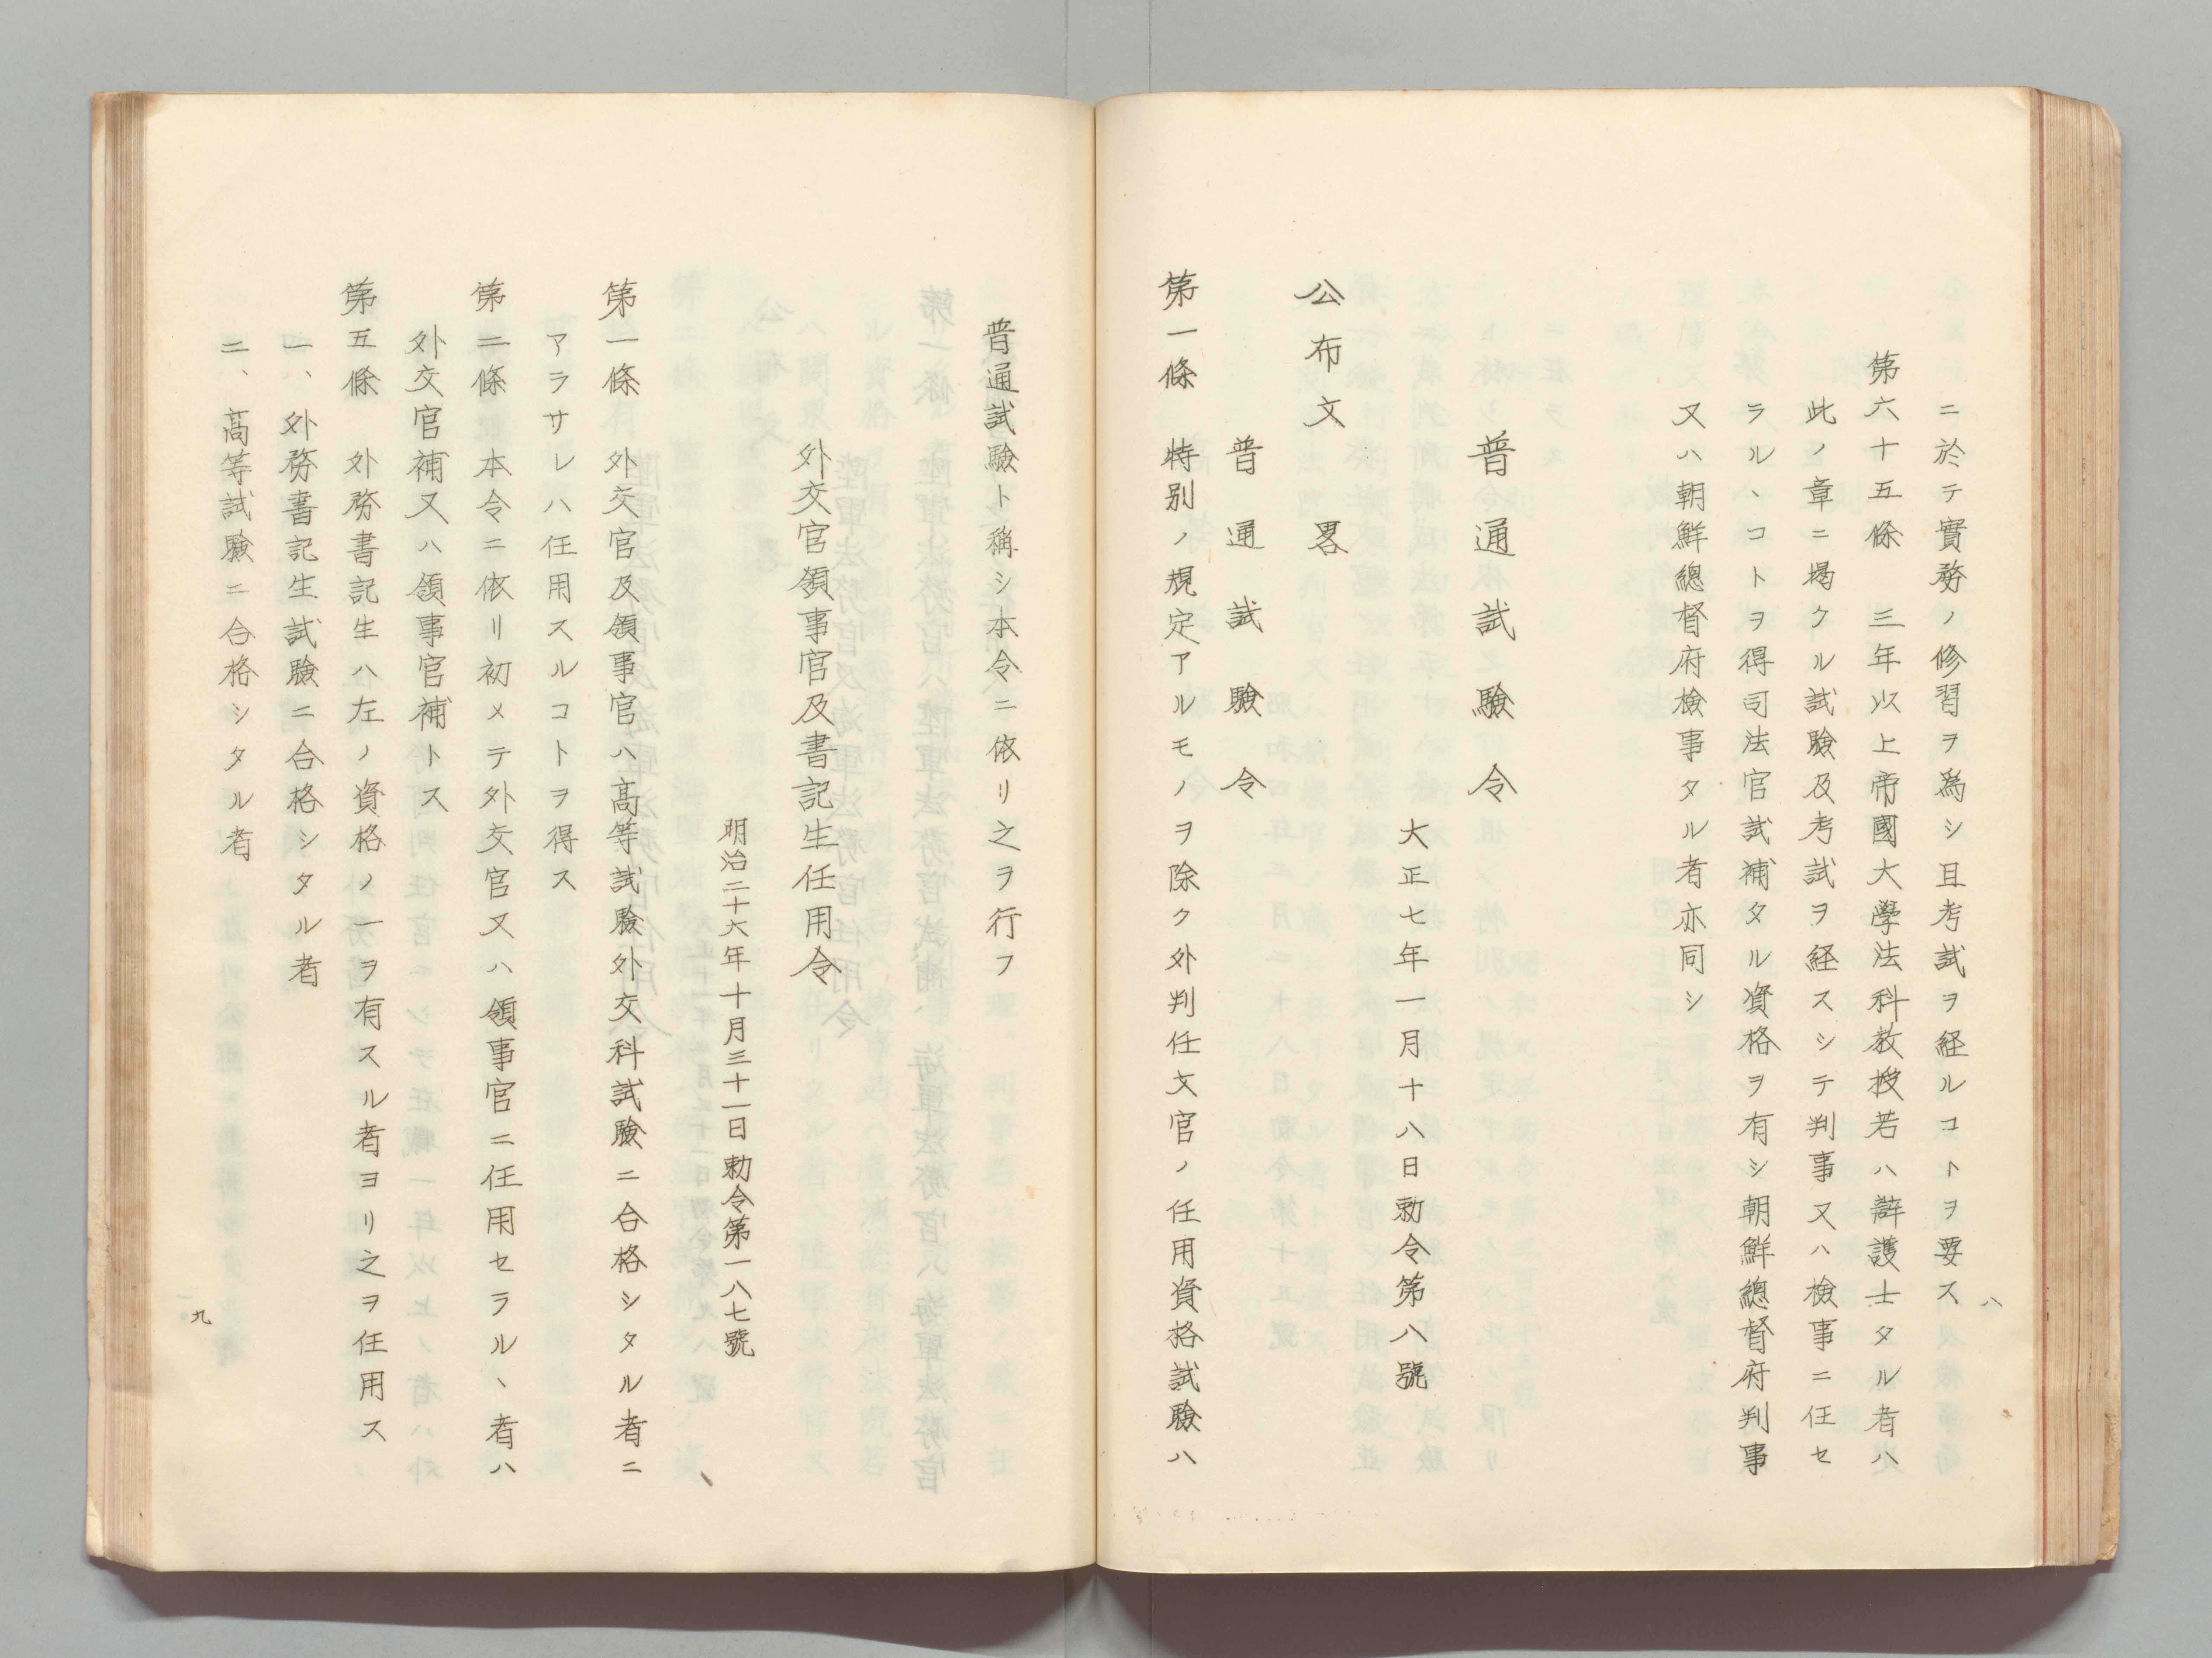 ニ於テ實務ノ修習ヲ爲シ且考試ヲ経ルコトヲ要ス
第六十五條　三年以上帝國大學法科教授若ハ辯護士タル者ハ
此ノ章ニ揭クル試驗及考試ヲ経スシテ判事又ハ檢事ニ任セ
ラル丶コトヲ得司法官試補タル資格ヲ有シ朝鮮總督府判事
又ハ朝鮮總督府檢事タル者亦同シ
普通試驗令
大正七年一月十八日勅令第八號
公布文　畧
普通試驗令
第一條　特別ノ規定アルモノヲ除ク外判任文官ノ任用資格試驗ハ
八
普通試驗ト稱シ本令ニ依リ之ヲ行フ
外交官領事官及書記生任用令
明治二十六年十月三十一日勅令第一八七號
第一條　外交官及領事官ハ高等試驗外交科試驗ニ合格シタル者ニ
アラサレハ任用スルコトヲ得ス
第二條　本令ニ依リ初メテ外交官又ハ領事官ニ任用セラル丶者ハ
外交官補又ハ領事官補トス
第五條　外務書記生ハ左ノ資格ノ一ヲ有スル者ヨリ之ヲ任用ス
一、外務書記生試驗ニ合格シタル者
二、高等試驗ニ合格シタル者
九